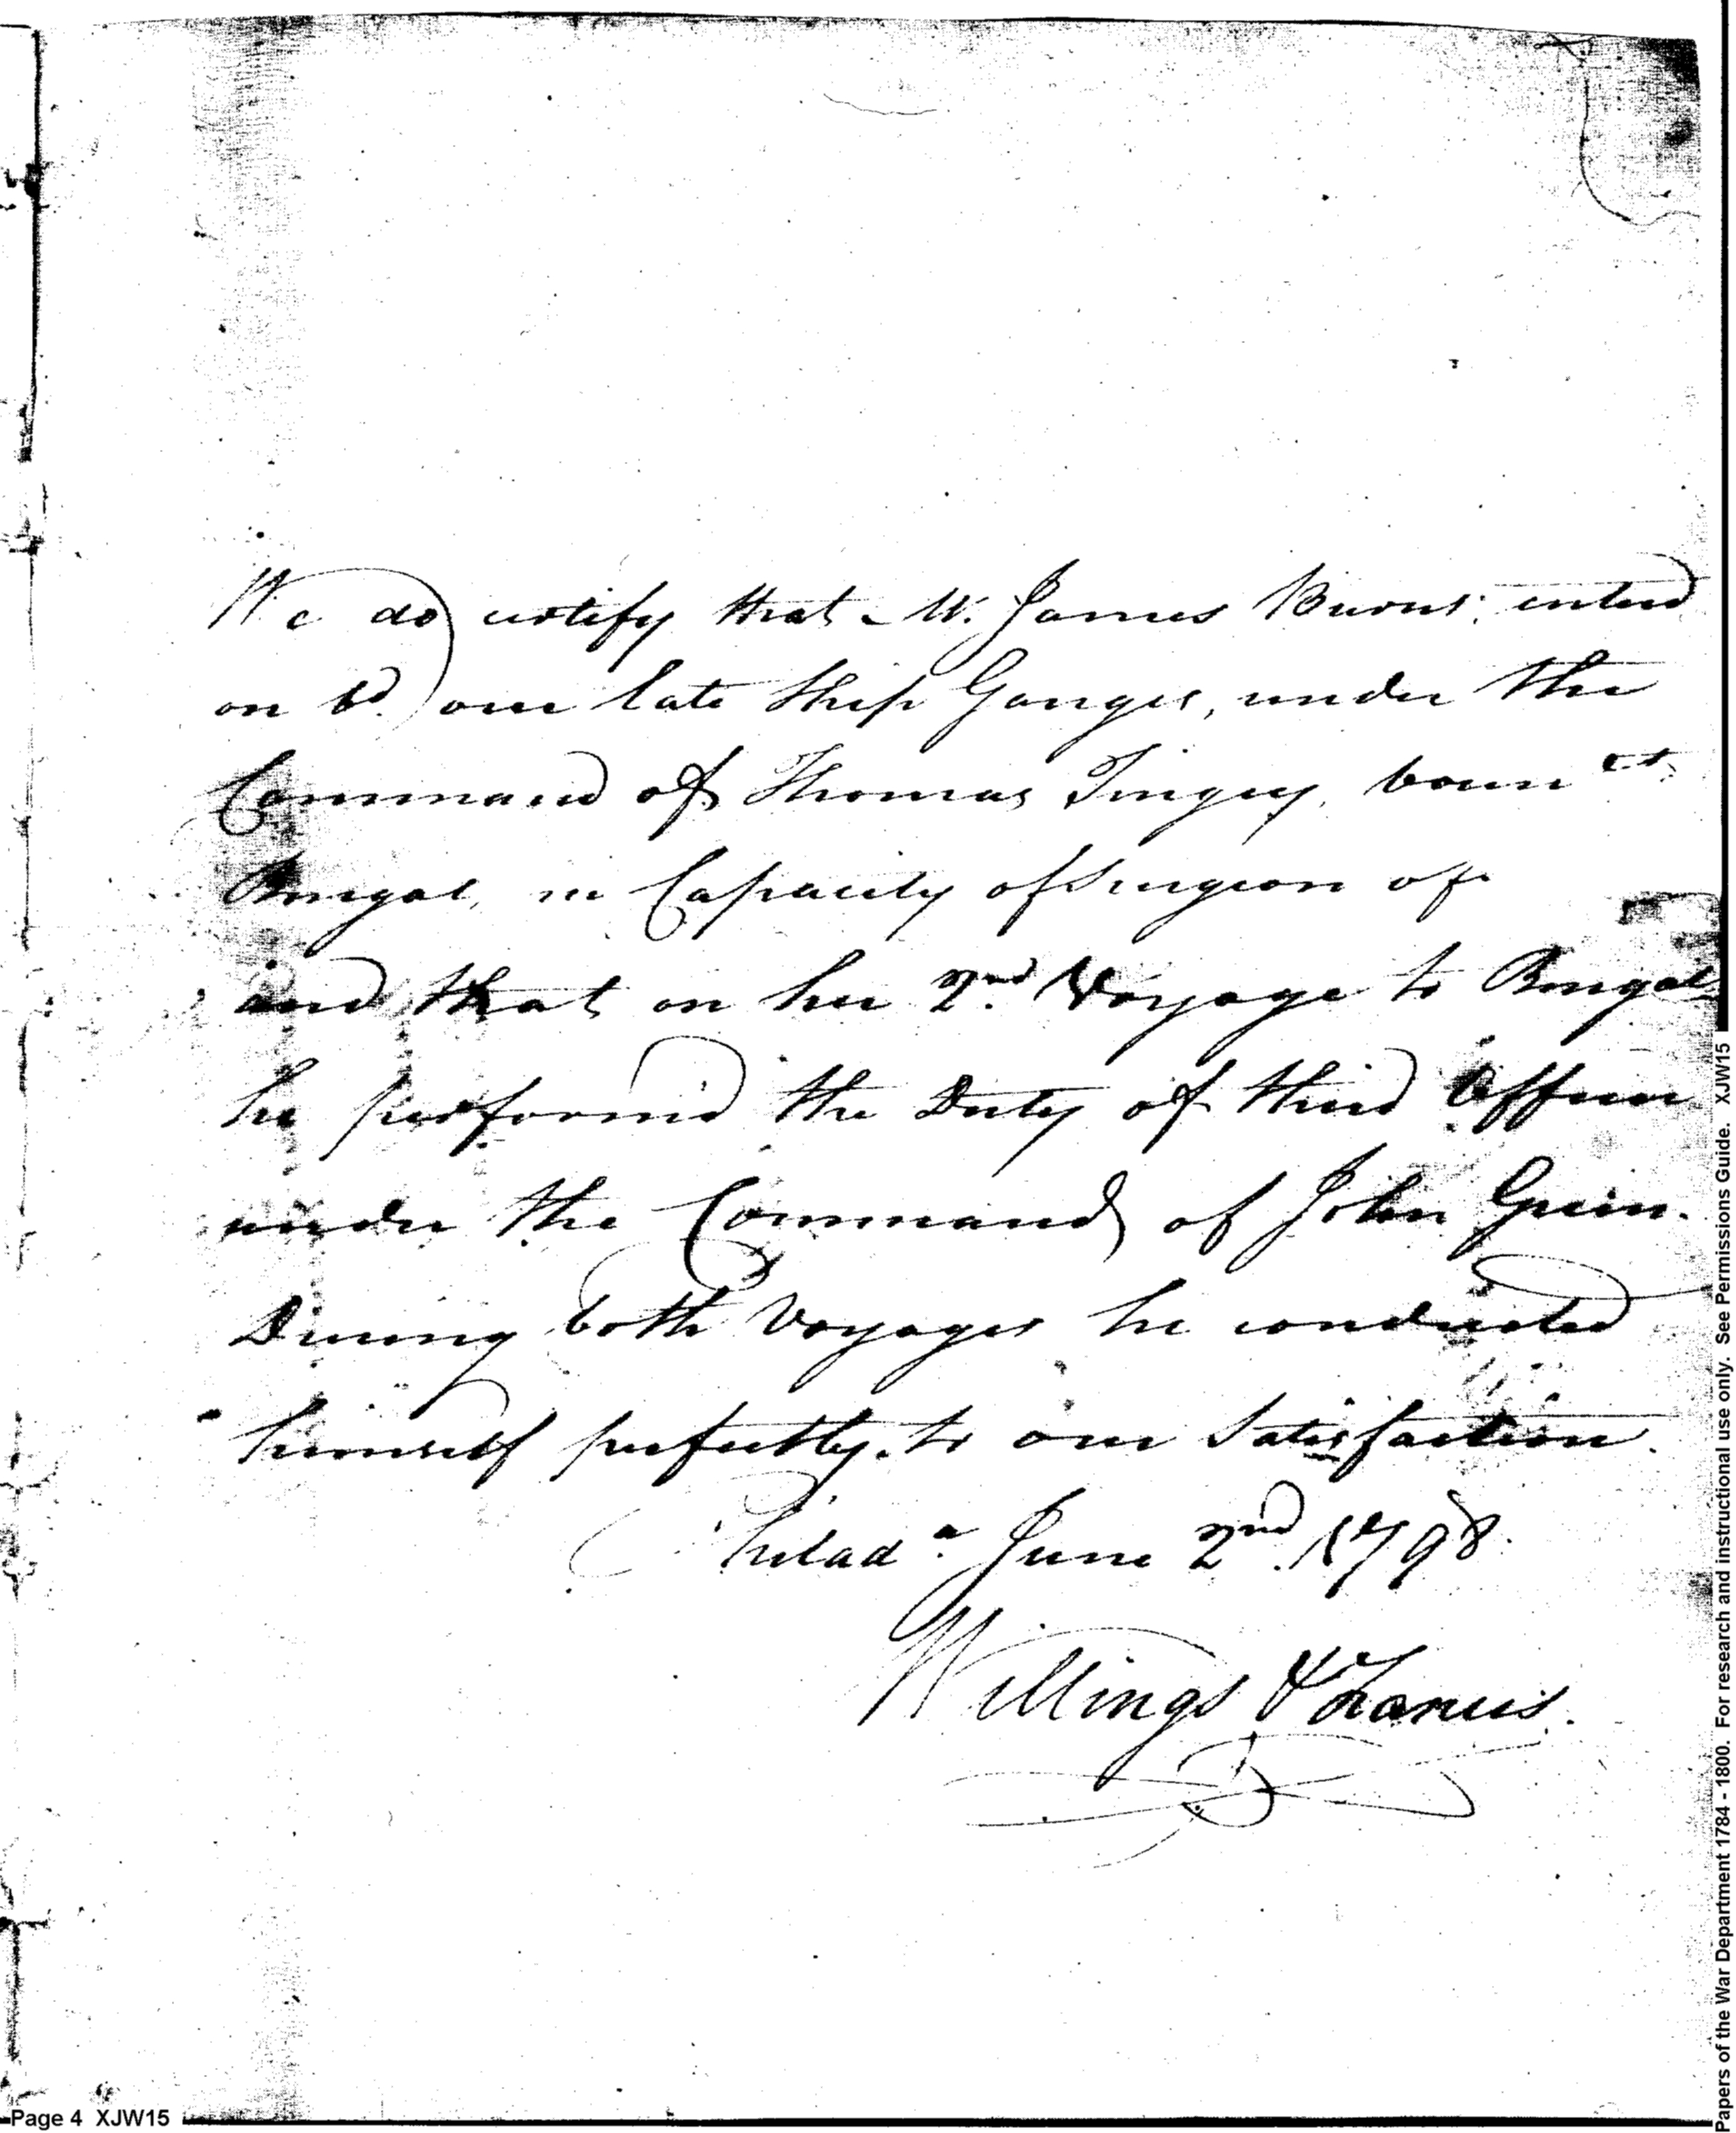 We do certify that Mr. James Burns, enterd
on bd. our late Ship Ganges, under the
Command of Thomas Tingey,
Bengal, in Capacity of Surgeon of
and that on her 2nd. Voyage to Bengal
he performd the Duty of third Officer
under the Command of John Green.
During both Voyages he conducted
himself perfectly to our Satisfaction.
Philada. June 2nd. 1798.
Willings & Francis.
Page 4 XJW15
Papers of the War Department 1784 - 1800. For research and instructional use only. See Permissions Guide. XJW15